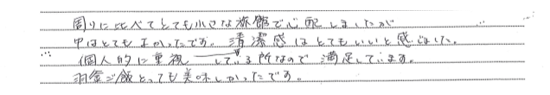 周りに比べてとても小さな旅館で心配しましたが
中はとてもよかったです。清潔感はとてもいいと感じました。
個人的に重視している所なので満足しています。
羽釜ご飯とっても美味しかったです。